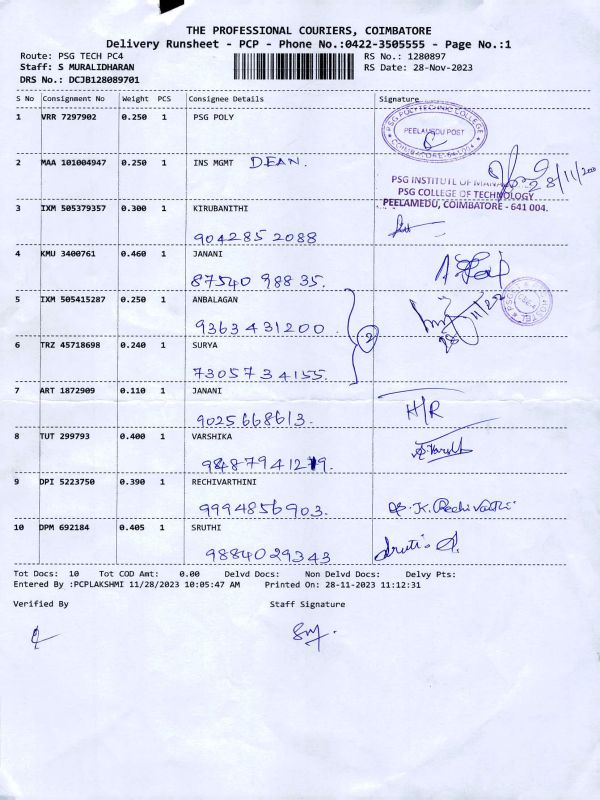 THE PROFESSIONAL COURIERS, COIMBATORE
Delivery Runsheet - PCP - Phone No.:0422-3505555 - Page No.:1
Route: PSG TECH PC4 RS No.: 1280897
Staff: S MURALIDHARAN RS Date: 28-Nov-2023
DRS No.: DCJB128089701
S No Consignment No Weight PCS Consignee Details Signature
1 VRR 7297902 0.250 1 PSG POLY
PSG POLYTECHNIC COLLEGE
PEELAMEDU POST
COIMBATORE-641004
2 MAA 101004947 0.250 1 INS MGMT DEAN.
PSG INSTITUTE OF
PSG COLLEGE OF TECHNOLOGY
PEELAMEDU, COIMBATORE - 641 004.
3 IXM 505379357 0.300 1 KIRUBANITHI
904285 2088
4 KMU 3400761 0.460 1 JANANI
87540 98835.
5 IXM 505415287 0.250 1 ANBALAGAN
9363431200
2
6 TRZ 45718698 0.240 1 SURYA
7305734155.
7 ART 1872909 0.110 1 JANANI
9025668613. H/R
8 TUT 299793 0.400 1 VARSHIKA
9 DPI 5223750 0.390 1 RECHIVARTHINI
9994856903.
10 DPM 692184 0.405 1 SRUTHI
9884029343
Tot Docs: 10 Tot COD Amt: 0.00 Delvd Docs: Non Delvd Docs: Delvy Pts:
Entered By :PCPLAKSHMI 11/28/2023 10:05:47 AM Printed On: 28-11-2023 11:12:31
Verified By Staff Signature